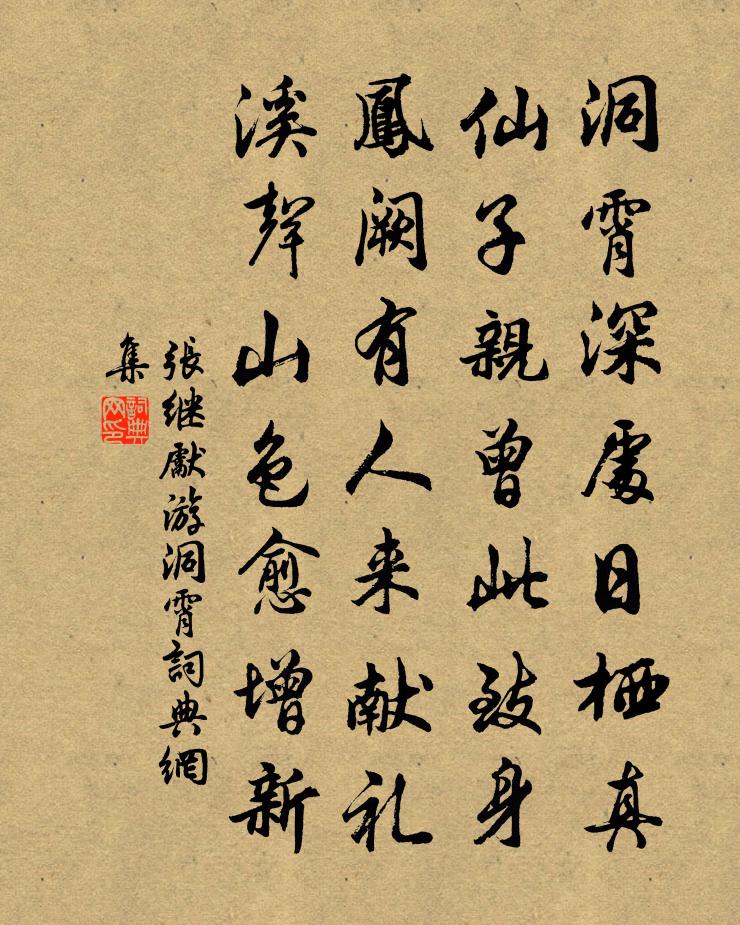 洞霄深處日栖真
仙子親曾此致身
鳳阙有人来献礼
溪聲山色愈增新
張继獻游洞霄詞典網
集
詞典
网印